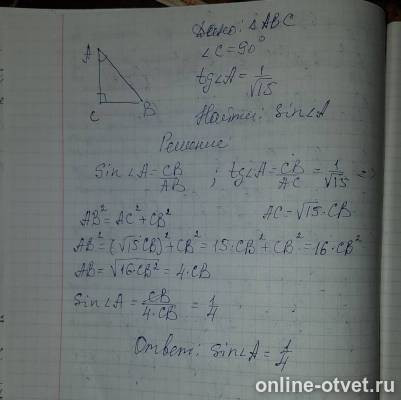 Дано: △ABC
∠C=90°
tg∠A = 1/√15
Найти: Sin∠A
A
C
B
Решение
Sin∠A = CB/AB ; tg∠A = CB/AC = 1/√15 =>
AC = √15·CB
AB² = AC² + CB²
AB² = (√15CB)² + CB² = 15·CB² + CB² = 16·CB²
AB = √16·CB² = 4·CB
Sin∠A = CB/4·CB = 1/4
Ответ: Sin∠A = 1/4
online-otvet.ru